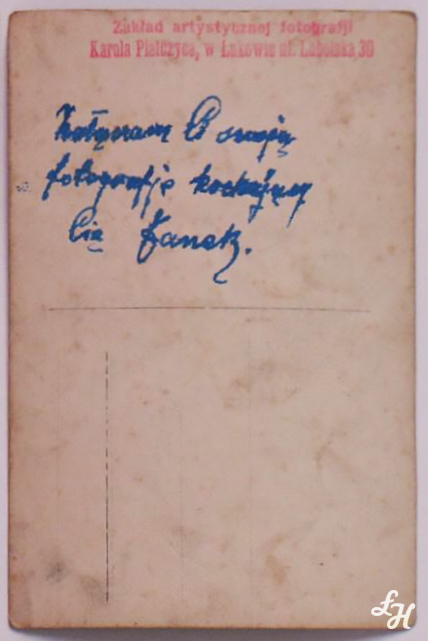 Zakład artystycznej fotografji
Karola w Łukowie ul. Lubelska 30
Załączam Ci swoją
fotografję kochający
Cię
ŁH